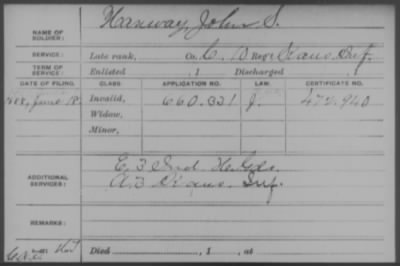 NAME OF SOLDIER: Hanway, John S.
SERVICE: Late rank, Co. C, 10 Reg't Kans. Inf.
TERM OF SERVICE: Enlisted , 1 Discharged , 1
DATE OF FILING. CLASS. APPLICATION NO. LAW. CERTIFICATE NO.
1888, June 18. Invalid, 660.321 J. 472.940
Widow,
Minor,
ADDITIONAL SERVICES: E. 3 Ind. H. Gds.
A. 3 Kans. Inf.
REMARKS:
Died , 1 , at